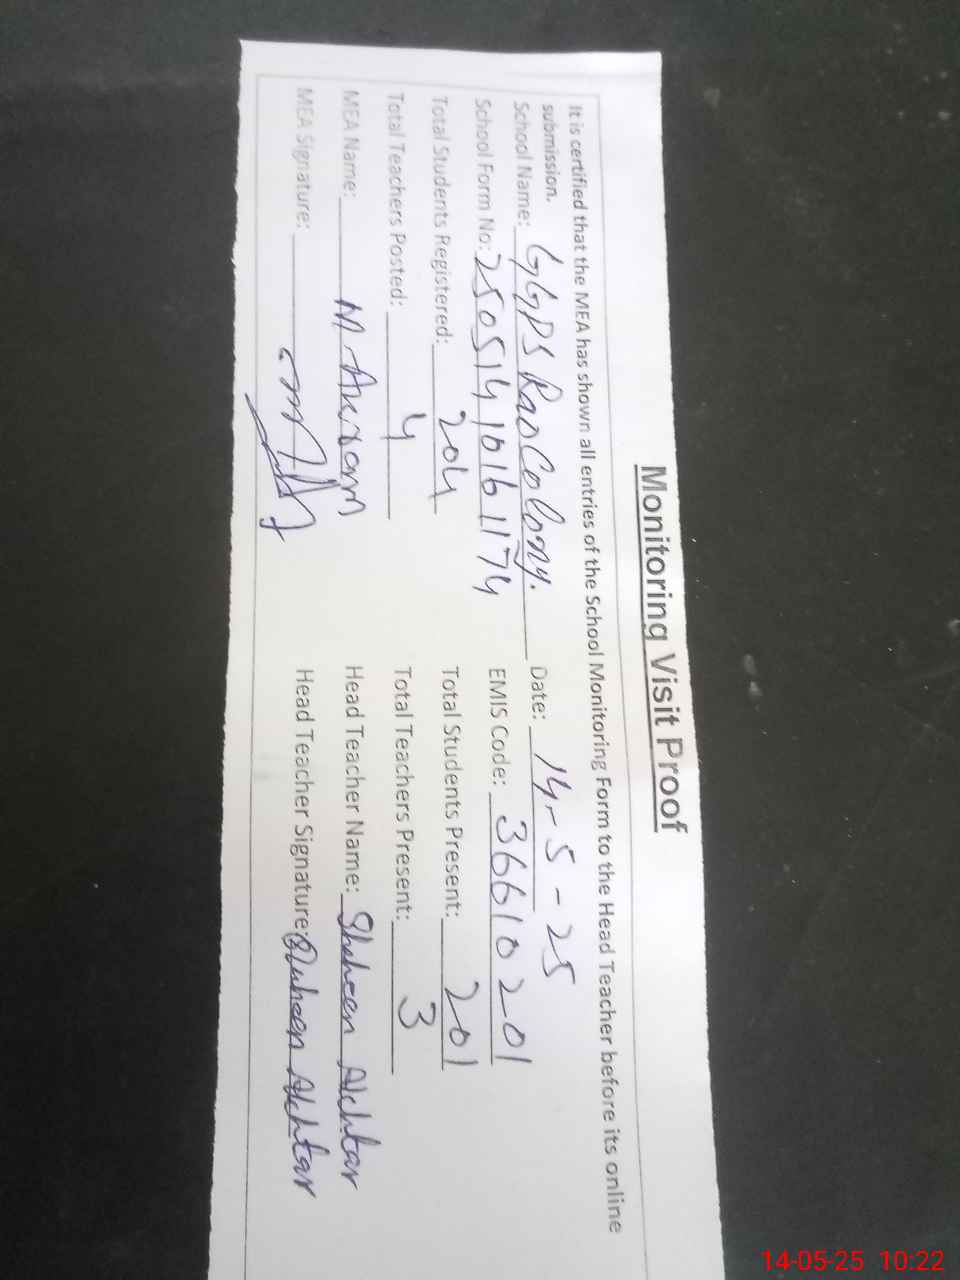 Monitoring Visit Proof
It is certified that the MEA has shown all entries of the School Monitoring Form to the Head Teacher before its online
submission.
School Name: GGPS Rao Colony. Date: 14-5-25
School Form No: 25051410161174 EMIS Code: 36610201
Total Students Registered: 204 Total Students Present: 201
Total Teachers Posted: 4 Total Teachers Present: 3
MEA Name: M. Akram Head Teacher Name: Shaheen Akhtar
MEA Signature: Head Teacher Signature: Shaheen Akhtar
14-05-25 10:22